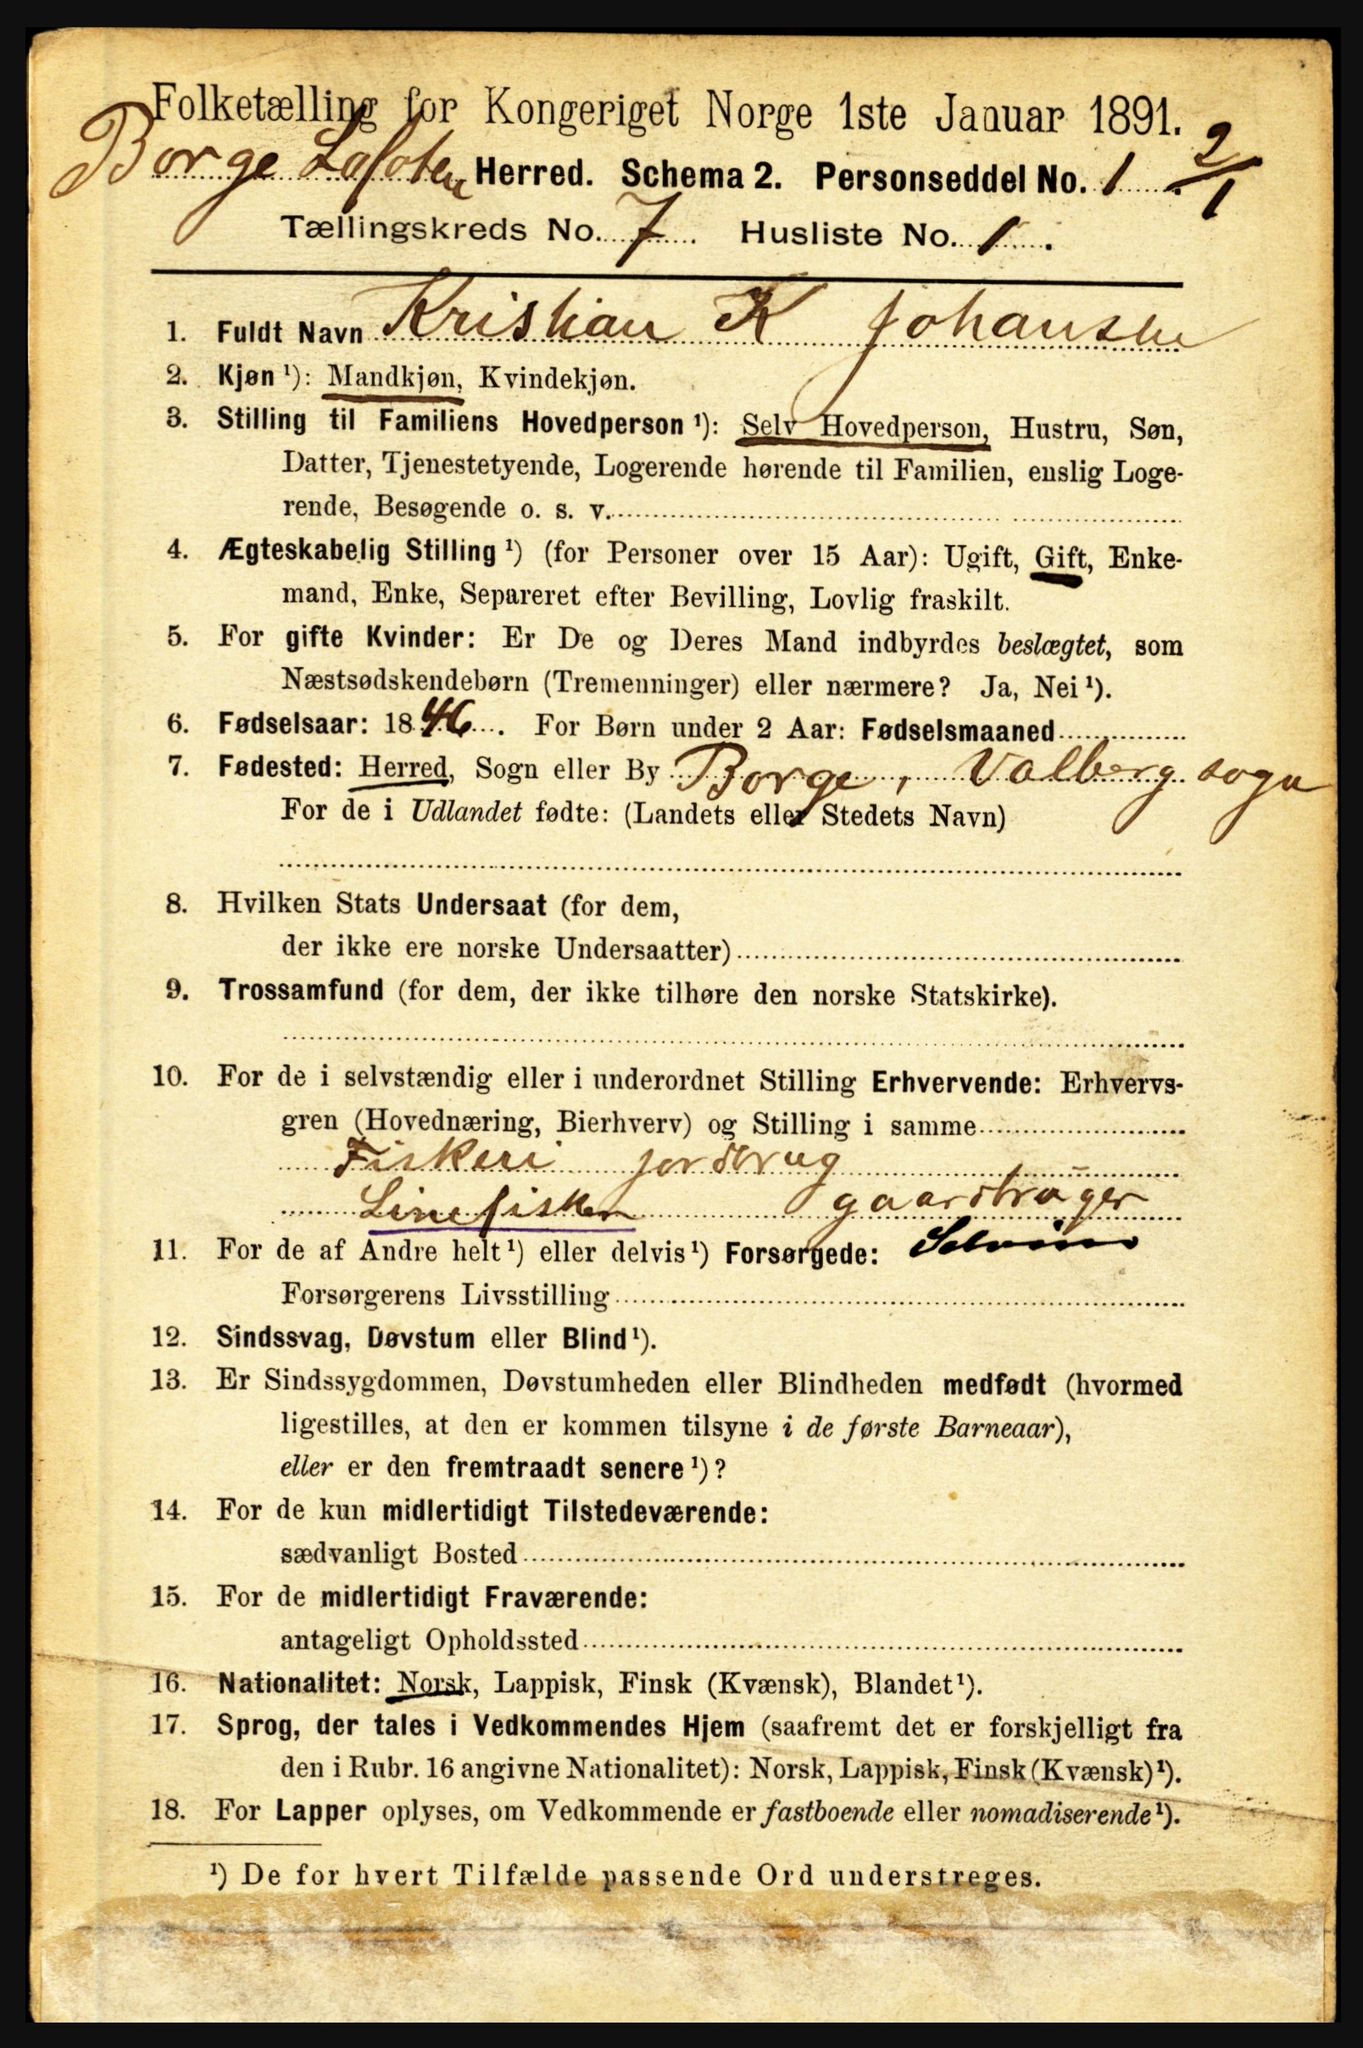 Folketælling for Kongeriget Norge 1ste Januar 1891.
Borge Lofoten Herred. Schema 2. Personseddel No. 1. 2/1
Tællingskreds No. 7 Husliste No. 1.
1. Fuldt Navn Kristian K Johansen
2. Kjøn ¹): Mandkjøn, Kvindekjøn.
3. Stilling til Familiens Hovedperson ¹): Selv Hovedperson, Hustru, Søn,
Datter, Tjenestetyende, Logerende hørende til Familien, enslig Loge-
rende, Besøgende o. s. v.
4. Ægteskabelig Stilling ¹) (for Personer over 15 Aar): Ugift, Gift, Enke-
mand, Enke, Separeret efter Bevilling, Lovlig fraskilt.
5. For gifte Kvinder: Er De og Deres Mand indbyrdes beslægtet, som
Næstsødskendebørn (Tremenninger) eller nærmere? Ja, Nei ¹).
6. Fødselsaar: 1846. For Børn under 2 Aar: Fødselsmaaned
7. Fødested: Herred, Sogn eller By Borge, Valberg sogn
For de i Udlandet fødte: (Landets eller Stedets Navn)
8. Hvilken Stats Undersaat (for dem,
der ikke ere norske Undersaatter)
9. Trossamfund (for dem, der ikke tilhøre den norske Statskirke).
10. For de i selvstændig eller i underordnet Stilling Erhvervende: Erhvervs-
gren (Hovednæring, Bierhverv) og Stilling i samme
Fiskeri jordbrug
Linefisker gaardbruger
11. For de af Andre helt ¹) eller delvis ¹) Forsørgede:
Forsørgerens Livsstilling
12. Sindssvag, Døvstum eller Blind ¹).
13. Er Sindssygdommen, Døvstumheden eller Blindheden medfødt (hvormed
ligestilles, at den er kommen tilsyne i de første Barneaar),
eller er den fremtraadt senere ¹)?
14. For de kun midlertidigt Tilstedeværende:
sædvanligt Bosted
15. For de midlertidigt Fraværende:
antageligt Opholdssted
16. Nationalitet: Norsk, Lappisk, Finsk (Kvænsk), Blandet ¹).
17. Sprog, der tales i Vedkommendes Hjem (saafremt det er forskjelligt fra
den i Rubr. 16 angivne Nationalitet): Norsk, Lappisk, Finsk (Kvænsk) ¹).
18. For Lapper oplyses, om Vedkommende er fastboende eller nomadiserende ¹).
¹) De for hvert Tilfælde passende Ord understreges.